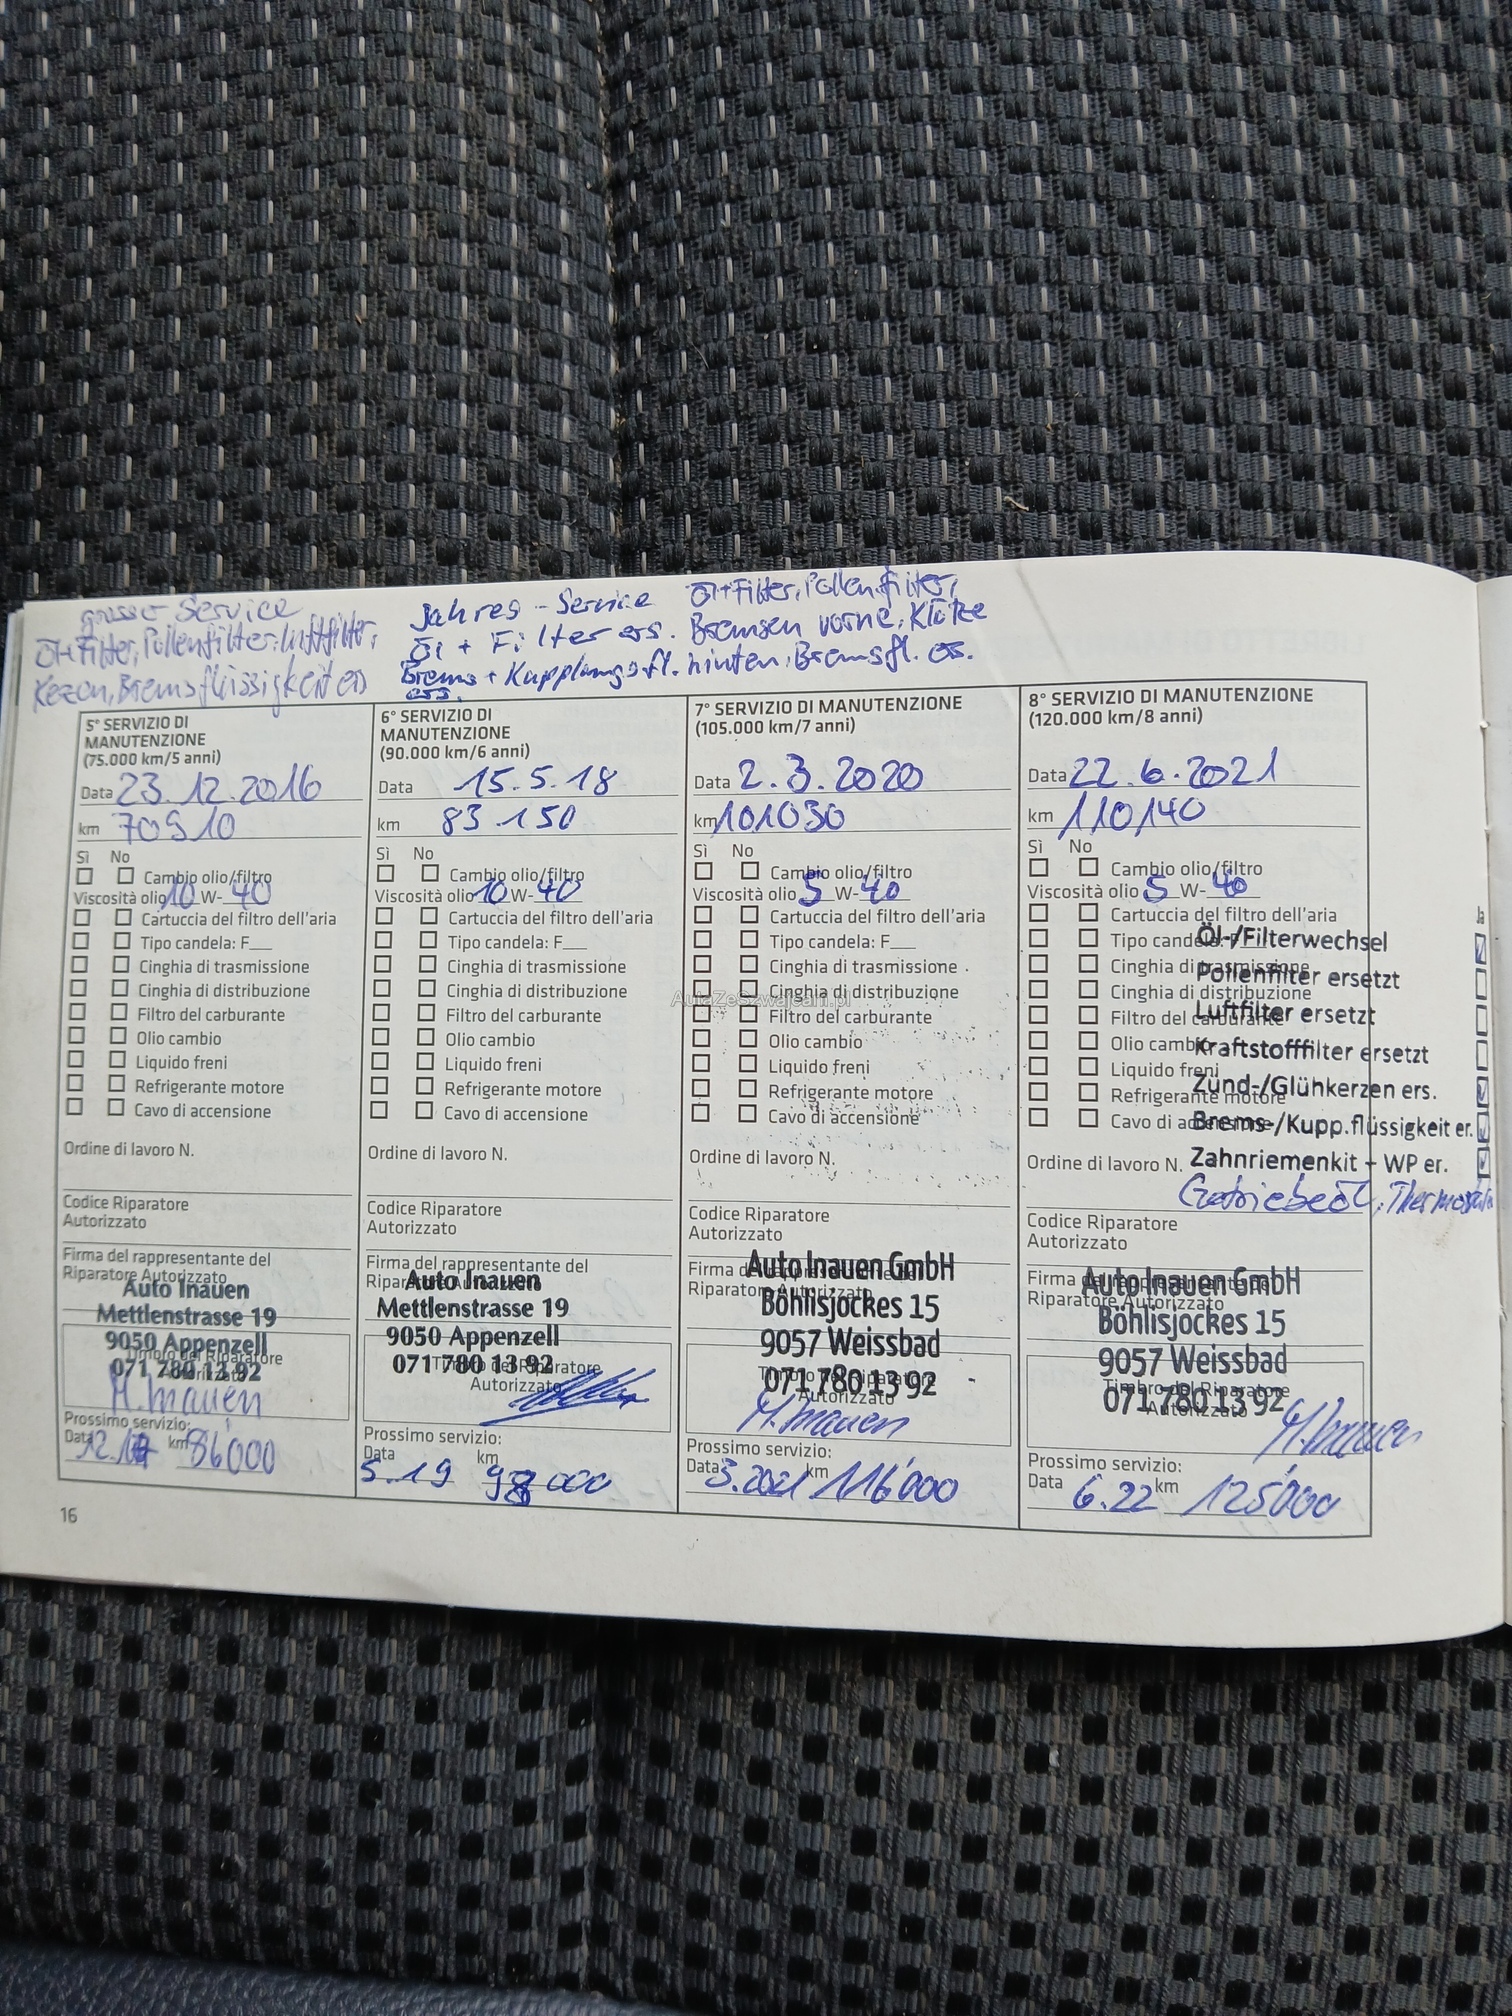 grosser Service
Öl+Filter, Pollenfilter, Luftfilter,
Kerzen, Bremsflüssigkeit ers
Jahres-Service
Öl + Filter ers.
Brems + Kupplungsfl.
ers.
Öl+Filter, Pollenfilter,
Bremsen vorne, Klötze
hinten, Bremsfl. ers.
5° SERVIZIO DI
MANUTENZIONE
(75.000 km/5 anni)
Data 23.12.2016
km 70910
Sì No
Cambio olio/filtro
Viscosità olio 10 W-40
Cartuccia del filtro dell'aria
Tipo candela: F__
Cinghia di trasmissione
Cinghia di distribuzione
Filtro del carburante
Olio cambio
Liquido freni
Refrigerante motore
Cavo di accensione
Ordine di lavoro N.
Codice Riparatore
Autorizzato
Firma del rappresentante del
Riparatore Autorizzato
Auto Inauen
Mettlenstrasse 19
9050 Appenzell
071 780 13 92
Timbro del Riparatore
Autorizzato
M. Inauen
Prossimo servizio:
Data 12.17 km 86'000
6° SERVIZIO DI
MANUTENZIONE
(90.000 km/6 anni)
Data 15.5.18
km 83 150
Sì No
Cambio olio/filtro
Viscosità olio 10 W-40
Cartuccia del filtro dell'aria
Tipo candela: F__
Cinghia di trasmissione
Cinghia di distribuzione
Filtro del carburante
Olio cambio
Liquido freni
Refrigerante motore
Cavo di accensione
Ordine di lavoro N.
Codice Riparatore
Autorizzato
Firma del rappresentante del
Riparatore Autorizzato
Auto Inauen
Mettlenstrasse 19
9050 Appenzell
071 780 13 92
Timbro del Riparatore
Autorizzato
Prossimo servizio:
Data 5.19 km 98 000
7° SERVIZIO DI MANUTENZIONE
(105.000 km/7 anni)
Data 2.3.2020
km 101030
Sì No
Cambio olio/filtro
Viscosità olio 5 W-40
Cartuccia del filtro dell'aria
Tipo candela: F__
Cinghia di trasmissione
Cinghia di distribuzione
Filtro del carburante
Olio cambio
Liquido freni
Refrigerante motore
Cavo di accensione
Ordine di lavoro N.
Codice Riparatore
Autorizzato
Firma del rappresentante del
Riparatore Autorizzato
Auto Inauen GmbH
Böhlisjockes 15
9057 Weissbad
071 780 13 92
Timbro del Riparatore
Autorizzato
M. Inauen
Prossimo servizio:
Data 3.2021 km 116'000
8° SERVIZIO DI MANUTENZIONE
(120.000 km/8 anni)
Data 22.6.2021
km 110140
Sì No
Cambio olio/filtro
Viscosità olio 5 W-40
Cartuccia del filtro dell'aria
Tipo candela: F
Cinghia di trasmissione
Cinghia di distribuzione
Filtro del carburante
Olio cambio
Liquido freni
Refrigerante motore
Cavo di accensione
Ordine di lavoro N.
Ja
Öl-/Filterwechsel
Pollenfilter ersetzt
Luftfilter ersetzt
Kraftstofffilter ersetzt
Zünd-/Glühkerzen ers.
Brems-/Kupp.flüssigkeit er.
Zahnriemenkit + WP er.
Getriebeöl,
Codice Riparatore
Autorizzato
Firma del rappresentante del
Riparatore Autorizzato
Auto Inauen GmbH
Böhlisjockes 15
9057 Weissbad
071 780 13 92
Timbro del Riparatore
Autorizzato
M. Inauen
Prossimo servizio:
Data 6.22 km 125'000
16
AutaZeSzwajcarii.pl